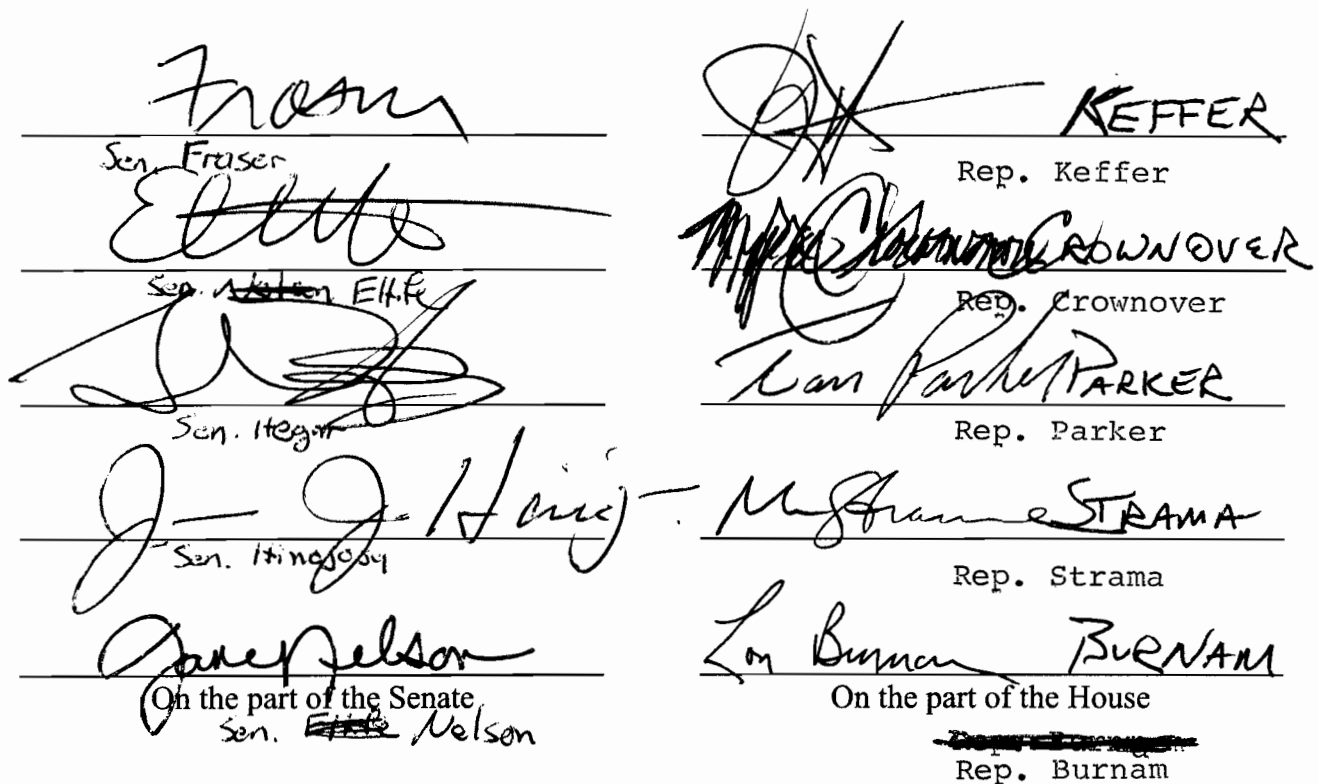 Fraser
Sen. Fraser
Eltife
Sen. Eltife
Sen. Hegar
Sen. Hinojosa
Jane Nelson
On the part of the Senate
Sen. Nelson
KEFFER
Rep. Keffer
CROWNOVER
Rep. Crownover
Tan Parker PARKER
Rep. Parker
STRAMA
Rep. Strama
Lon Burnam BURNAM
On the part of the House
Rep. Burnam